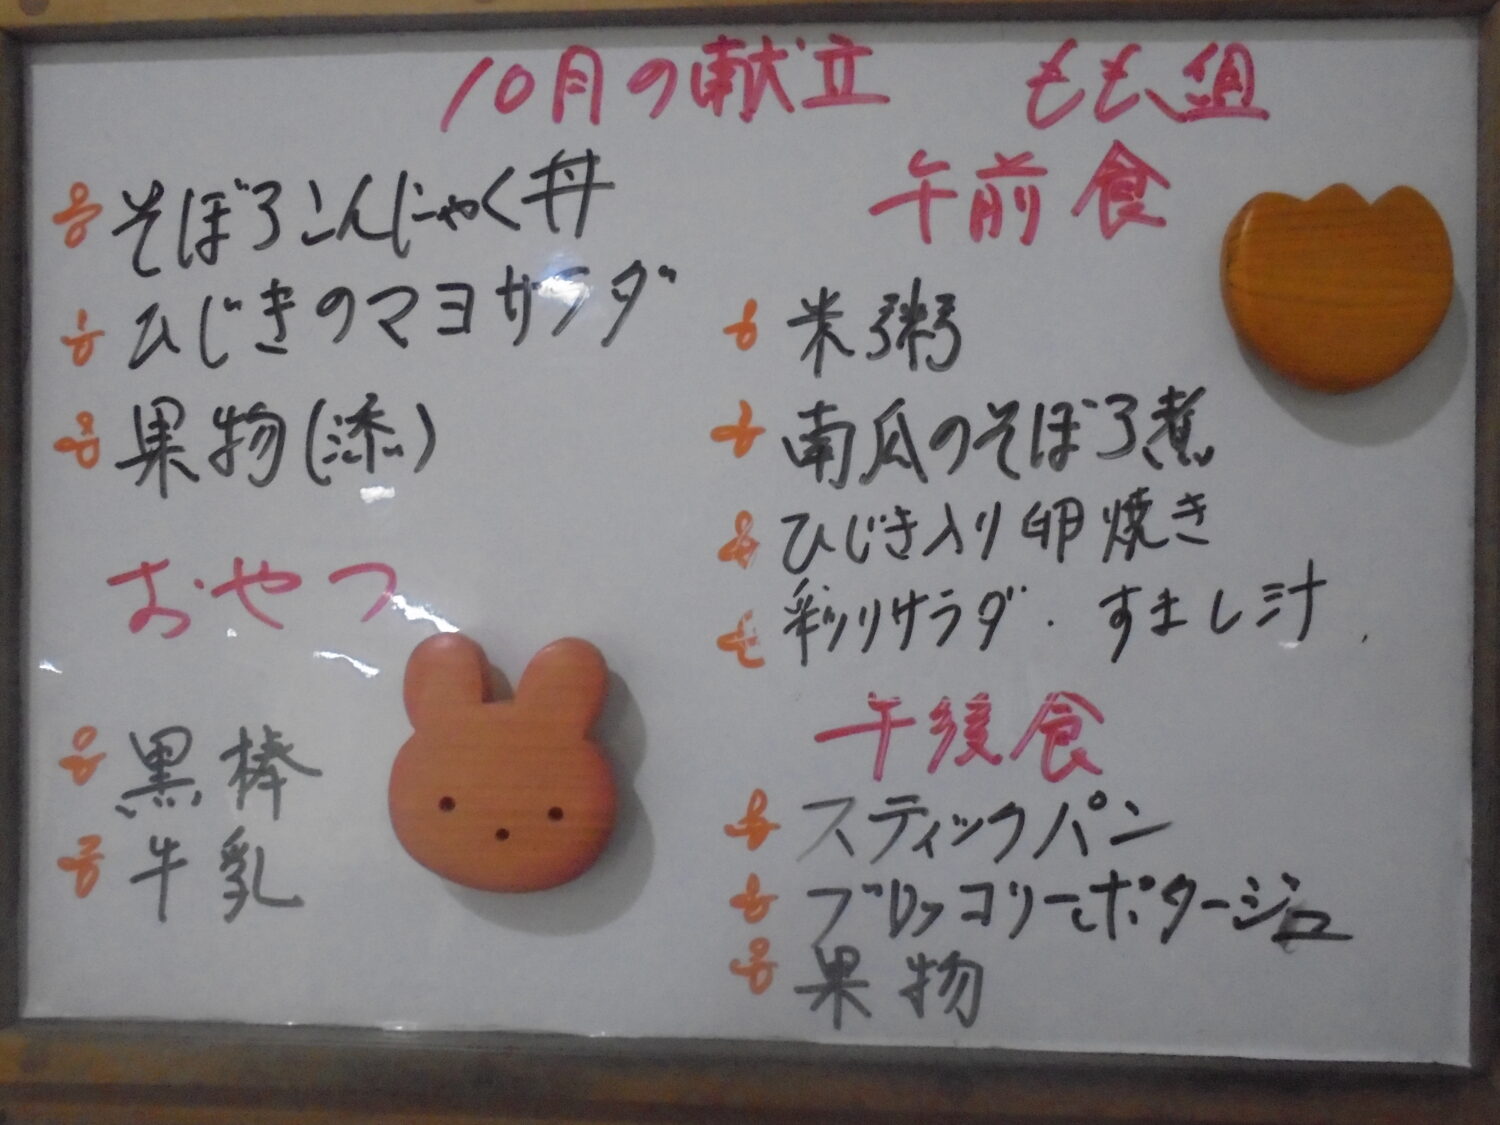 10月の献立
そぼろこんにゃく丼
ひじきのマヨサラダ
果物(添)
おやつ
黒棒
牛乳
もも組
午前食
米粥
南瓜のそぼろ煮
ひじき入り卵焼き
彩りサラダ・すまし汁
午後食
スティックパン
ブロッコリーポタージュ
果物